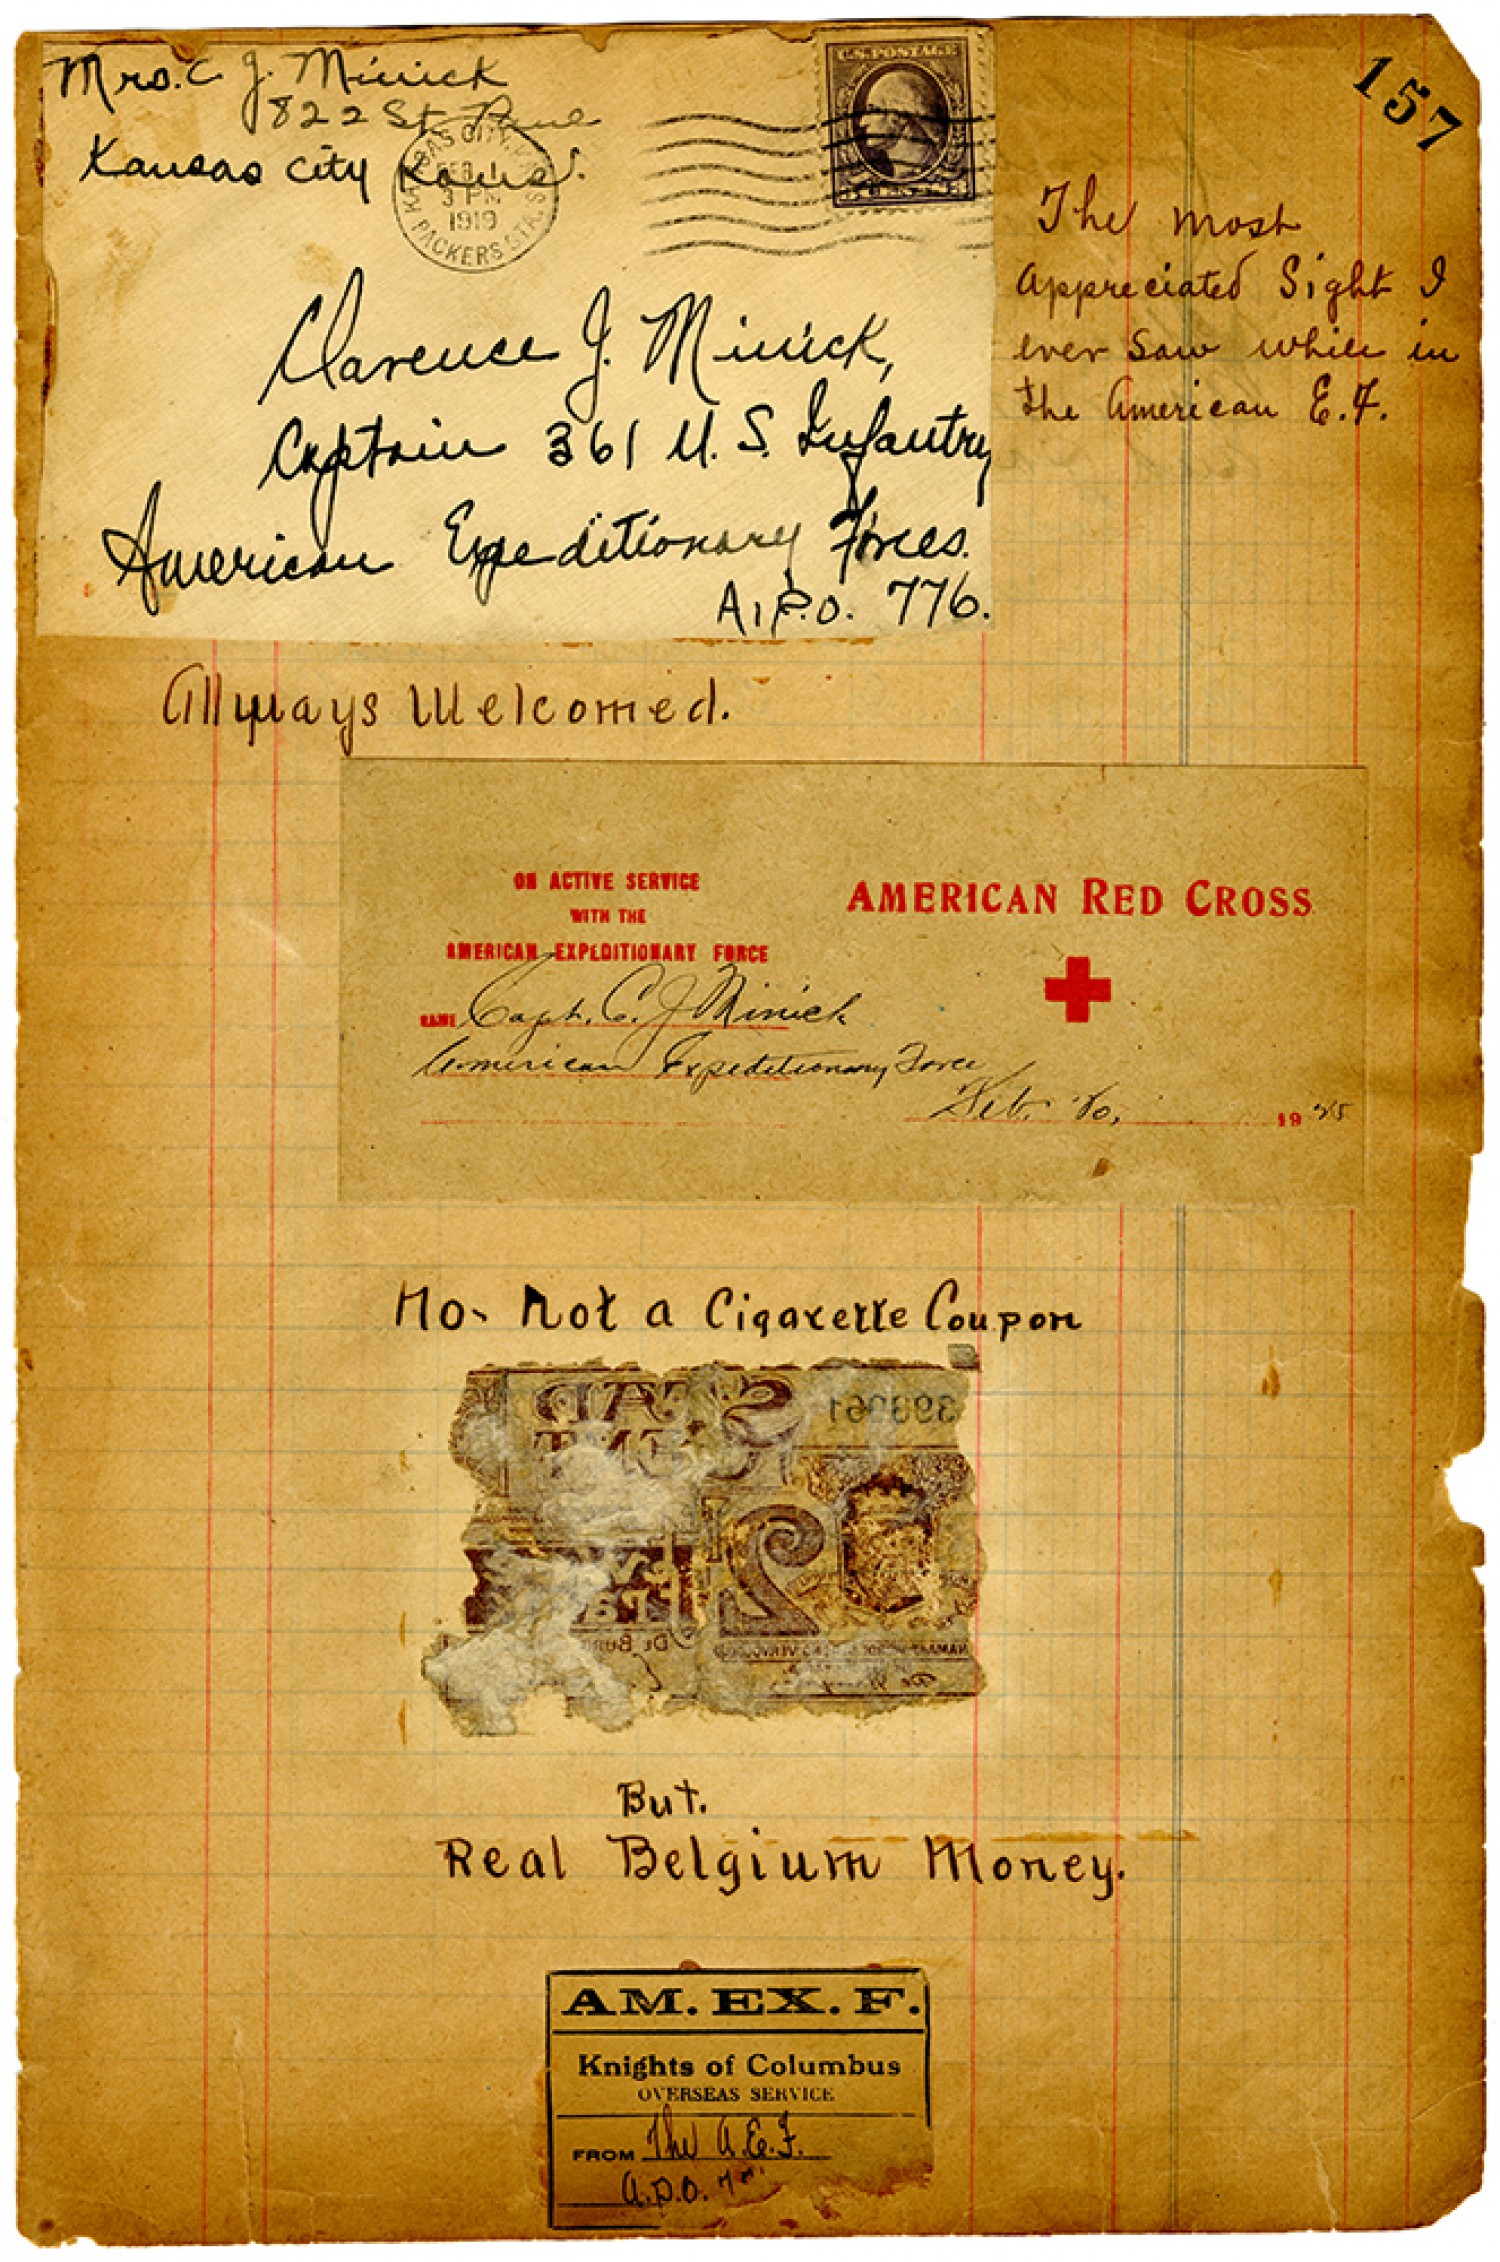 157
Mrs. C J. Minick
822 St. Paul
Kansas City Kans.
KANSAS CITY, KAN.
FEB 1
3 PM
1919
PACKERS STA.
U.S. POSTAGE
3 CENTS 3
Clarence J. Minick,
Captain 361 U.S. Infantry
American Expeditionary Forces.
A.P.O. 776.
The most
appreciated Sight I
ever saw while in
the American E.F.
Allways Welcomed.
ON ACTIVE SERVICE
WITH THE
AMERICAN EXPEDITIONARY FORCE
AMERICAN RED CROSS
NAME Capt. C. J. Minick
American Expeditionary Force
Feb. 10, 19
No- Not a Cigarette Coupon
2
But.
Real Belgium Money.
AM. EX. F.
Knights of Columbus
OVERSEAS SERVICE
FROM The A.E.F.
A.P.O.